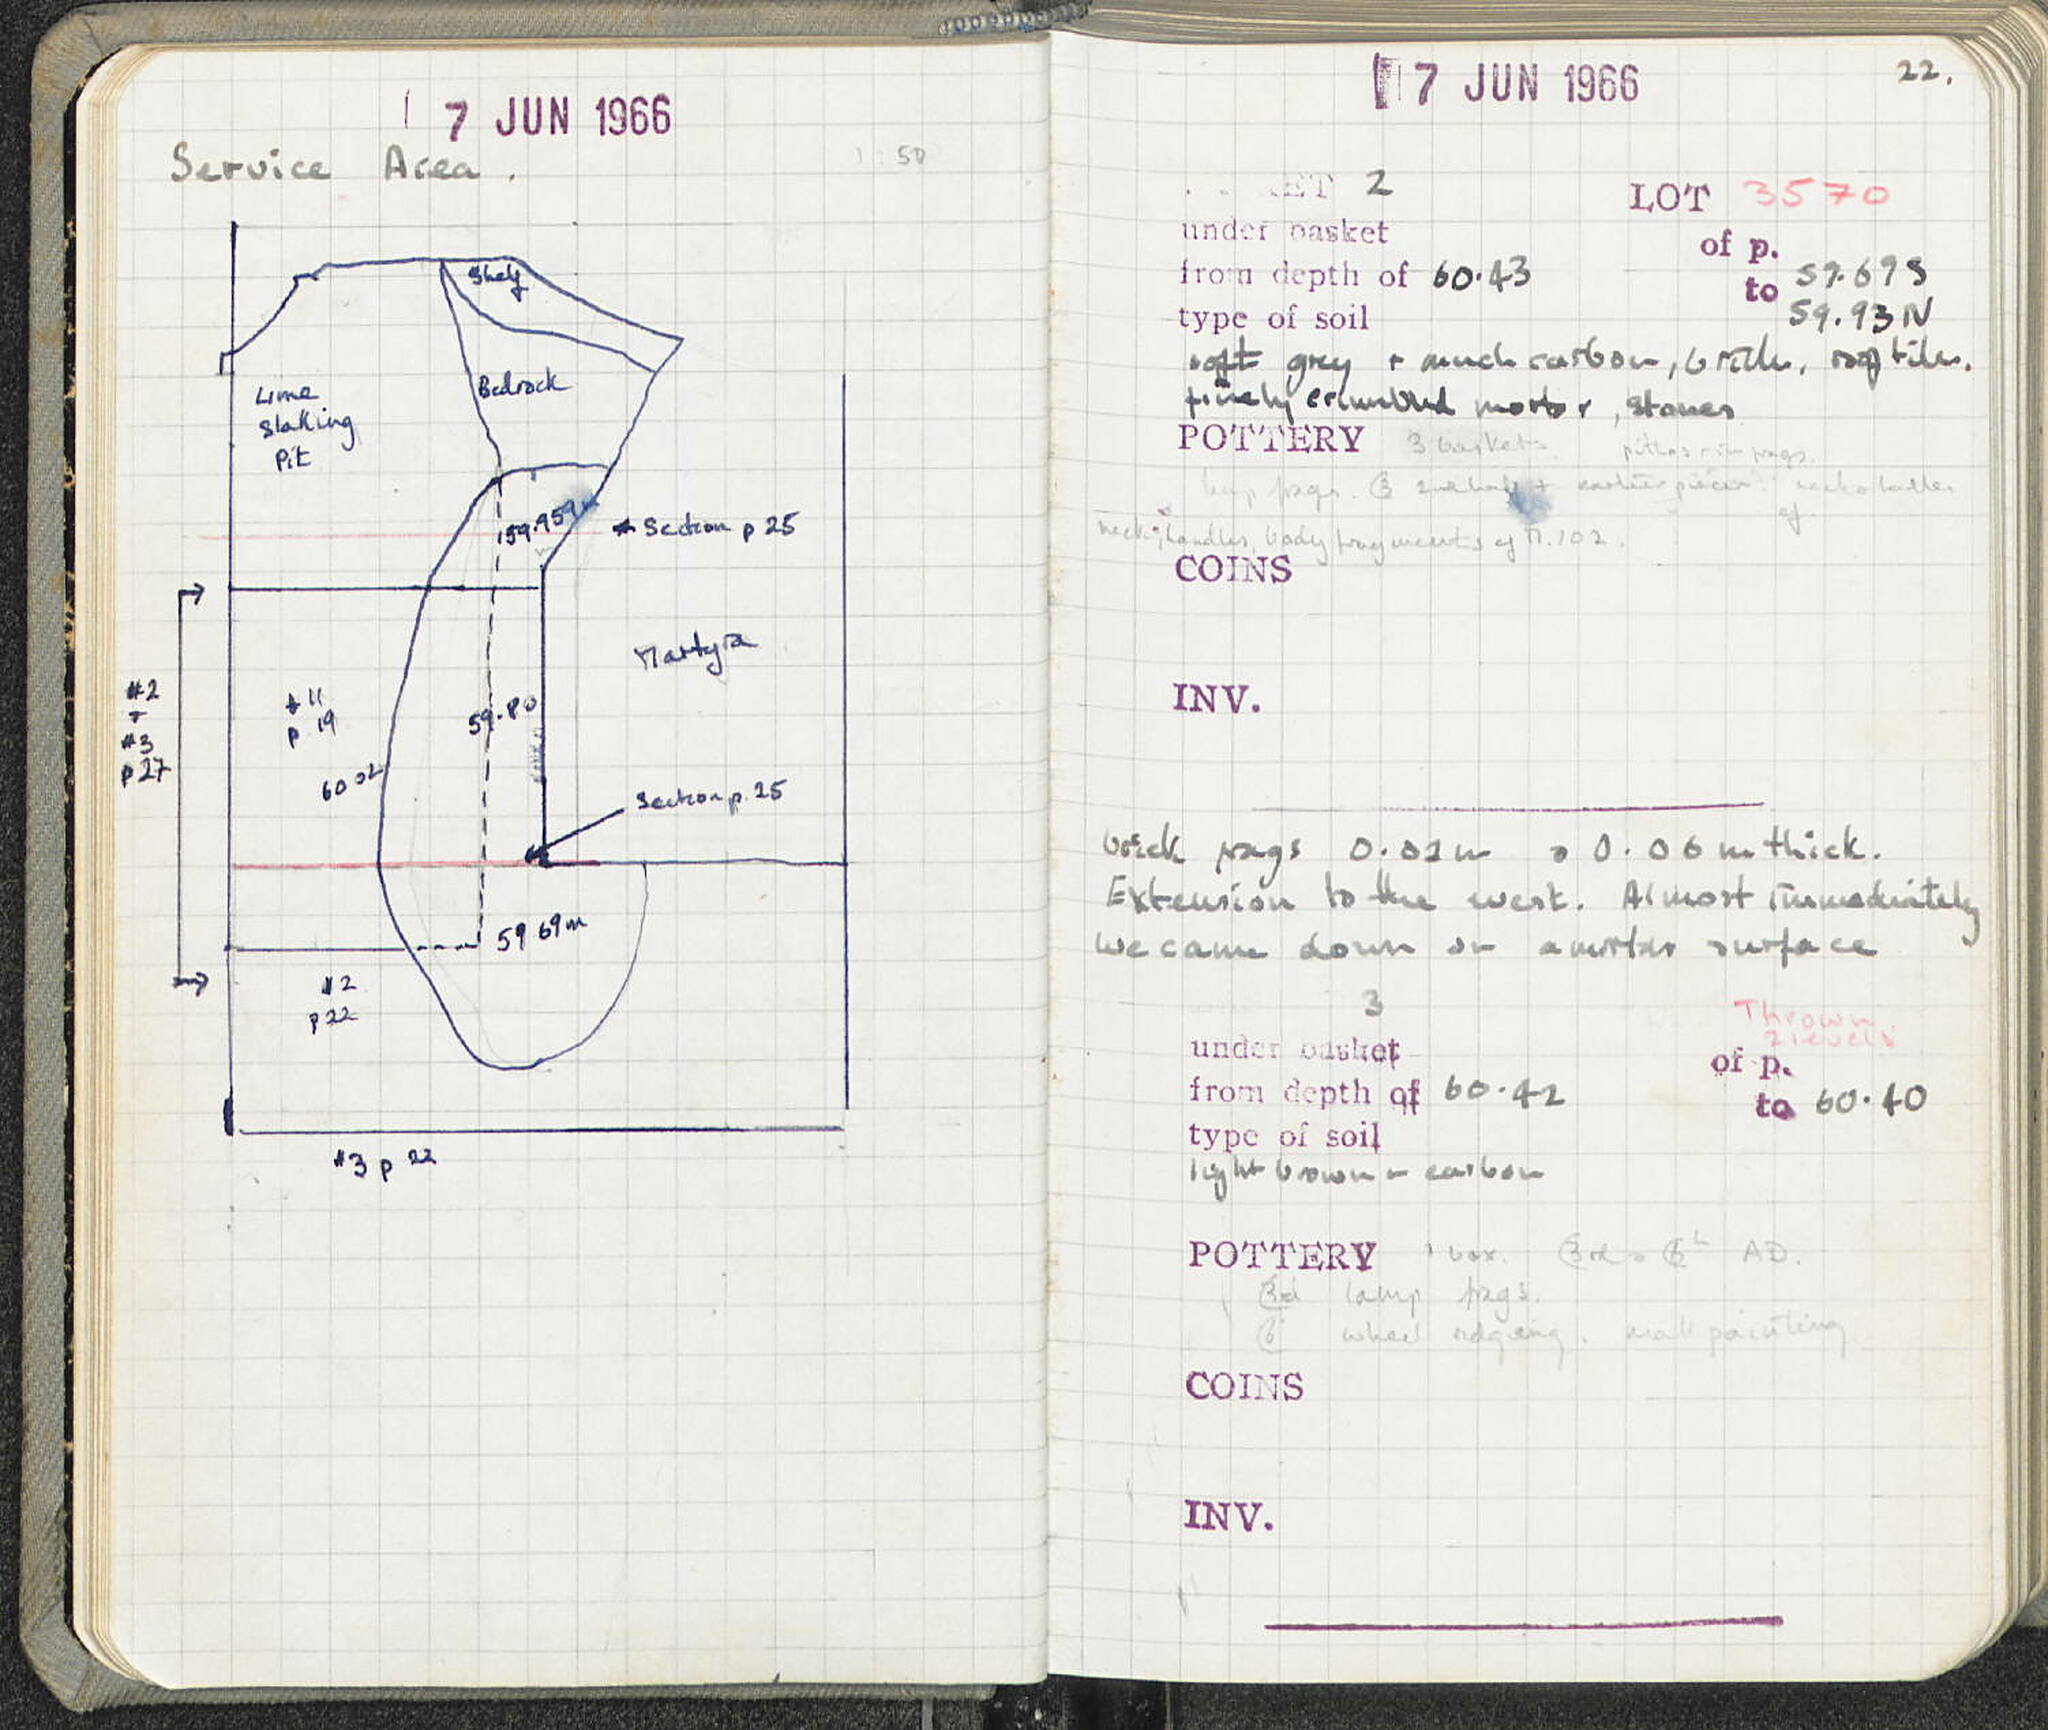 7 JUN 1966
Service Area.
1:50
Shelf
Bedrock
Lime
Slaking
Pit
59.959m
Section p 25
Martyra
#2
+
#3
p 27
#11
p 19
59.80
60.02
Section p. 25
59.69m
#2
p 22
#3 p 22
7 JUN 1966
22.
2
LOT 3570
under basket
of p.
from depth of 60.43
to 59.69 S
59.93 N
type of soil
soft grey + much carbon, bricks, roof tiles,
finely crumbled mortar, stones
POTTERY 3 baskets. pithos rim frags.
lamp frags.
neck, handles, body fragments of
COINS
INV.
brick frags 0.02m 0.06m thick.
Extension to the west. Almost immediately
we came down on a mortar surface
3
Thrown
2 levels
under basket
of p.
from depth of 60.42
to 60.40
type of soil
light brown + carbon
POTTERY 1 box. AD.
3rd lamp frags.
wheel ridging. wall painting
COINS
INV.